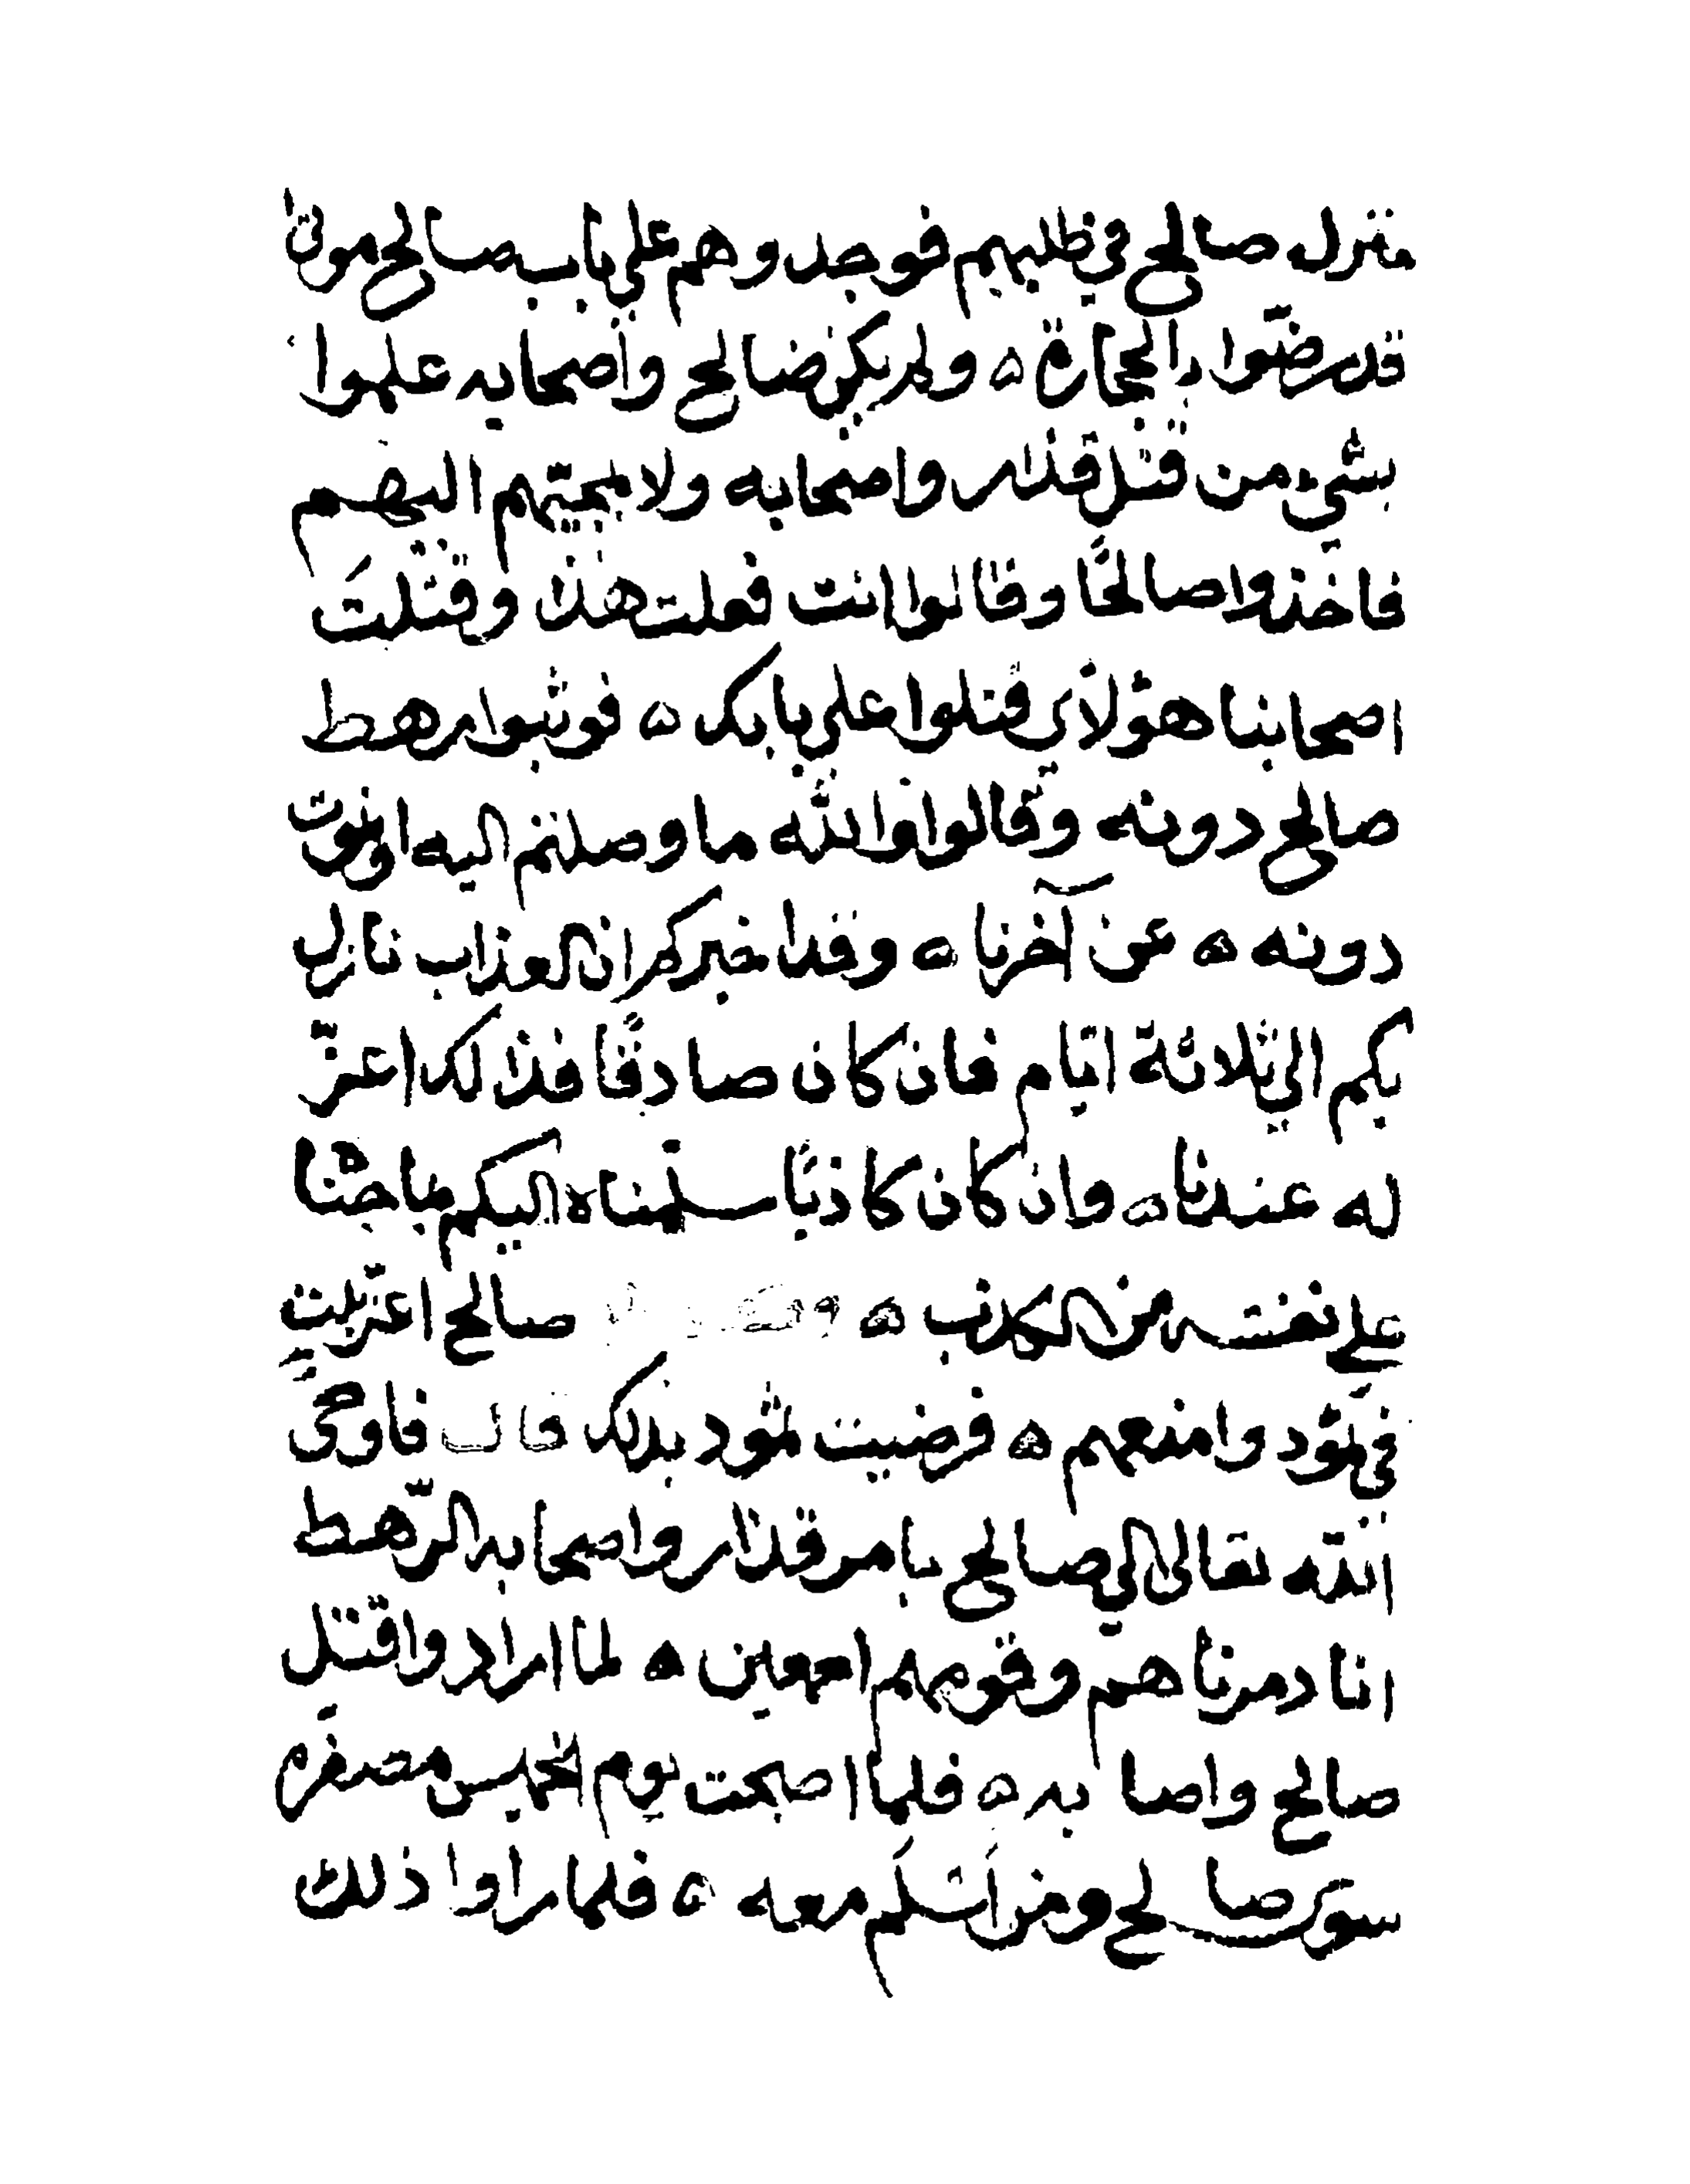 منزل صالح في طلبهم فوجدوهم علي باب صالح موتي
قد رضّوا بالحجارة ه ولم يكن صالح وأصحابه علموا
بشيء من قتل قذار واصحابه ولا بمجيّتهم اليهم
فاخذوا صالحًا وقالوا انت فعلت هذا وقتلتَ
اصحابنا هؤلآي قتلوا علي بابك ه فوثبوا رهط
صالح دونه وقالوا والله ما وصلتم اليه او نموت
دونه ه عن آخرنا ه وقد اخبركم ان العذاب نازل
بكم الي ثلاثة ايّام فان كان صادقًا فذالك اعزّ
له عندنا ه وان كان كاذبًا سلّمناه اليكم بما جنا
علي نفسه من الكذب ه صالح اعتزلت
في ثمّود وامنعهم ه فرضيت ثمود بذلك قال فاوحىَ
الله تعالى الي صالح بامر قذار واصحابه الرّهط
انا دمرناهم وقومهم اجمعين ه لما ارادوا قتل
صالح واصا به ه فلما اصبحت يوم الخميس مصفرّه
سوى صالح ومن أسْلَم معه ه فلما راوا ذلك